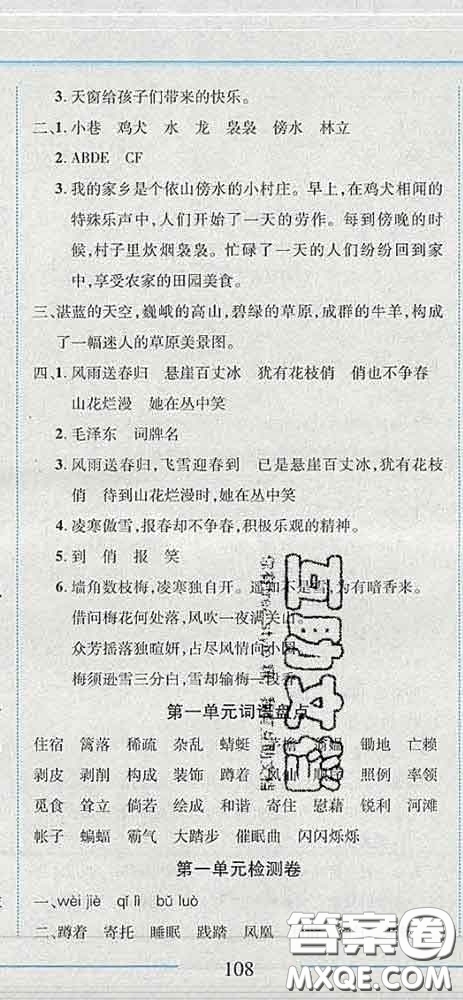 3. 天窗给孩子们带来的快乐。
二、1. 小巷 鸡犬 水 龙 袅袅 傍水 林立
2. ABDE CF
3. 我的家乡是个依山傍水的小村庄。早上,在鸡犬相闻的
特殊乐声中,人们开始了一天的劳作。每到傍晚的时
候,村子里炊烟袅袅。忙碌了一天的人们纷纷回到家
中,享受农家的田园美食。
三、湛蓝的天空,巍峨的高山,碧绿的草原,成群的牛羊,构成
了一幅迷人的草原美景图。
四、1. 风雨送春归 悬崖百丈冰 犹有花枝俏 俏也不争春
山花烂漫 她在丛中笑
2. 毛泽东 词牌名
3. 风雨送春归,飞雪迎春到 已是悬崖百丈冰,犹有花枝
俏 待到山花烂漫时,她在丛中笑
4. 凌寒傲雪,报春却不争春,积极乐观的精神。
5. 到 俏 报 笑
6. 墙角数枝梅,凌寒独自开。遥知不是雪,为有暗香来。
借问梅花何处落,风吹一夜满关山。
众芳摇落独暄妍,占尽风情向小园
梅须逊雪三分白,雪却输梅一段香
第一单元词语盘点
住宿 篱落 稀疏 杂乱 蜻蜓 茅檐 锄地 亡赖
剥皮 剥削 构成 装饰 蹲着 凤仙 顺序 照例 率领
觅食 耸立 倘若 绘成 和谐 寄住 慰藉 锐利 河滩
帐子 蝙蝠 霸气 大踏步 催眠曲 闪闪烁烁
第一单元检测卷
一、wèi jiè qī lì bǔ luò
二、蹲着 寄托 睡眠 践踏 凤凰
108
互助文档
答案圈
MXQE.COM